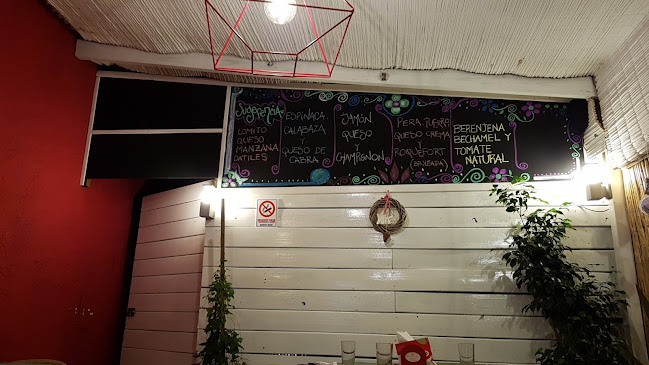 Sugerencia
LOMITO
QUESO
MANZANA
DATILES
ESPINACA
CALABAZA
Y
QUESO DE
CABRA
JAMÓN
QUESO
Y
CHAMPIGNON
PERA PUERRO
QUESO CREMA
Y
ROQUEFORT
BERENJENA
BECHAMEL Y
TOMATE
NATURAL